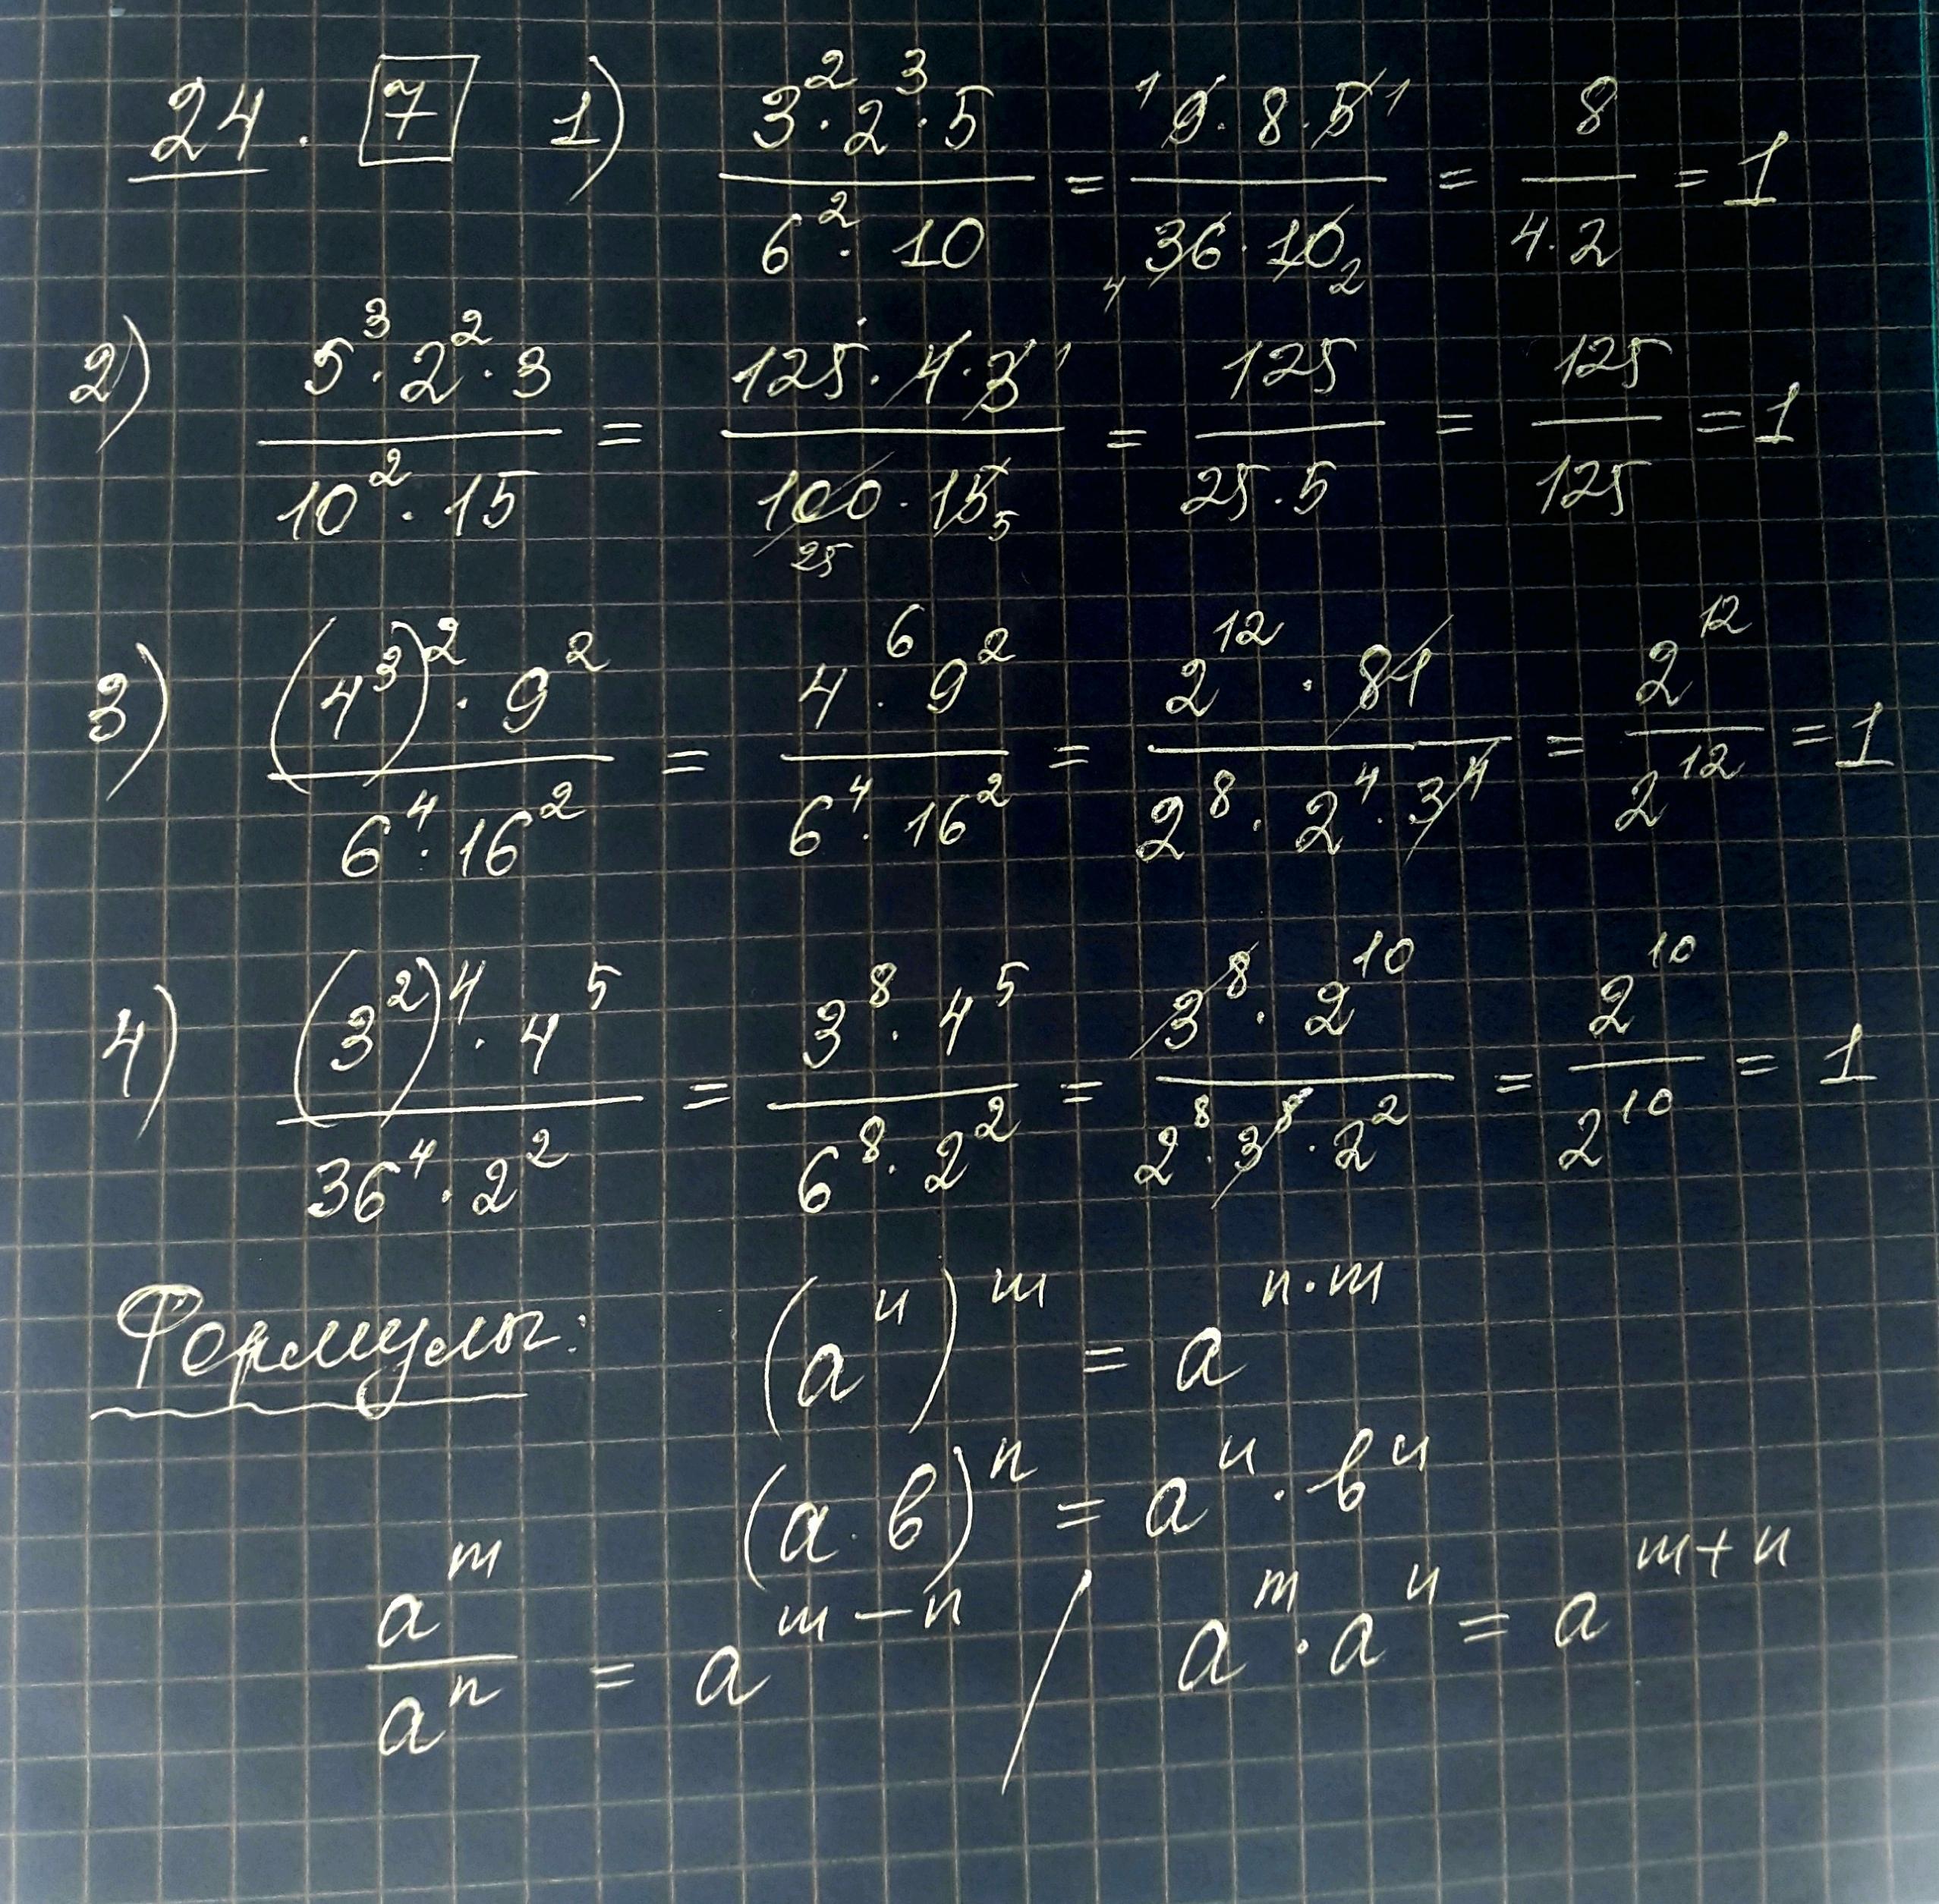 24. 7 1) (3²·2³·5)/(6²·10) = (¹9·8·5¹)/(₄36·10₂) = 8/(4·2) = 1
2) (5³·2²·3)/(10²·15) = (125·4·3¹)/(100₂₅·15₅) = 125/(25·5) = 125/125 = 1
3) ((4³)²·9²)/(6⁴·16²) = (4⁶·9²)/(6⁴·16²) = (2¹²·81)/(2⁸·2⁴·3⁴) = 2¹²/2¹² = 1
4) ((3²)⁴·4⁵)/(36⁴·2²) = (3⁸·4⁵)/(6⁸·2²) = (3⁸·2¹⁰)/(2⁸·3⁸·2²) = 2¹⁰/2¹⁰ = 1
Формулы: (aⁿ)ᵐ = aⁿ·ᵐ
(a·b)ⁿ = aⁿ·bⁿ
aᵐ/aⁿ = aᵐ⁻ⁿ / aᵐ·aⁿ = aᵐ⁺ⁿ